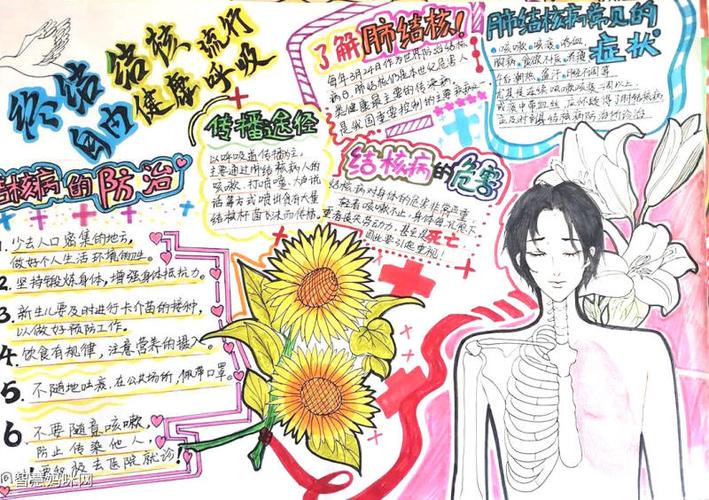 终结结核 流行
自由健康呼吸
了解肺结核!
每年3月24日作为世界防治结核
病日.肺结核仍是本世纪危害人
类健康最主要的传染病,
是我国重要控制的主要疾病之
肺结核病常见的
症状
咳嗽、咳痰、咯血,
胸痛、食欲不振、
午后潮热、盗汗、
尤其是连续咳嗽咳痰二周以上
或痰中带血丝,应怀疑得了肺结核病
传播途径
以呼吸道传播为主,
主要通过肺结核病人的
咳嗽、打喷嚏、大声说
话等方式喷出含有大量
结核杆菌飞沫而传播。
结核病的危害
结核病对身体的危害非常严重
轻者咳嗽不止,身体
丧失劳动力,甚至是死亡
因此要引起重视!
结核病的防治
1. 少去人口密集的地方,
做好个人生活环境的卫生。
2. 坚持锻炼身体,增强身体抵抗力。
3. 新生儿要及时进行卡介苗的接种,
以做好预防工作。
4. 饮食有规律,注意营养的摄入。
5. 不随地吐痰,在公共场所,佩带口罩。
6. 不要随意咳嗽,
防止传染他人,
去医院就诊!
@智慧妈咪网